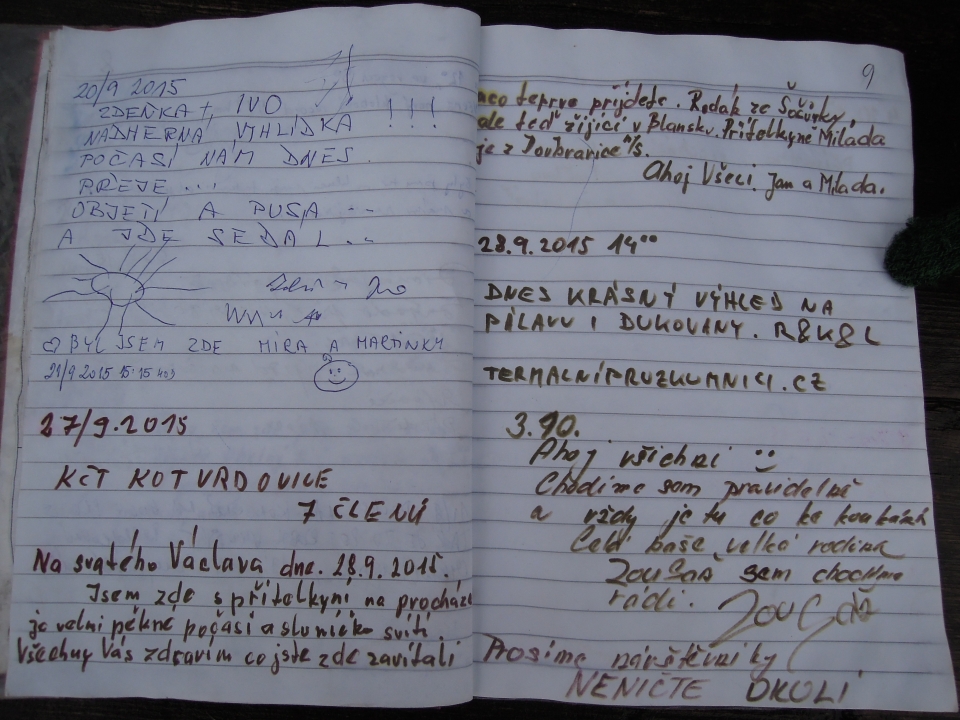 20/9 2015
ZDEŇKA + IVO
NÁDHERNÁ VÝHLÍDKA !!!
POČASÍ NÁM DNES
PŘEJE ...
OBJETÍ A PUSA ..
A JDE SE DÁL ..
BYL JSEM ZDE MÍRA A MARTINKY
21/9 2015 15:15
27/9.2015
KČT KOTVRDOVICE
7 ČLENŮ
Na svatého Václava dne. 28.9. 2015.
Jsem zde s přítelkyní na procházce
je velmi pěkné počasí a sluníčko svítí.
Všechny Vás zdravím co jste zde zavítali
9
neo teprve přijdete. Rodák ze Šošůvky,
ale teď žijící v Blansku. Přítelkyně Milada
je z Doubravice n/S.
Ahoj Všeci. Jan a Milada.
28.9.2015 14°°
DNES KRÁSNÝ VÝHLED NA
PÁLAVU I DUKOVANY. R&K&L
TERMALNIPRUZKUMNICI.CZ
3.10.
Ahoj všichni
Chodíme sem pravidelně
a vždy je tu co ke koukání
Celá naše velká rodina
sem chodíme
rádi.
Prosíme návštěvníky
NENIČTE OKOLÍ